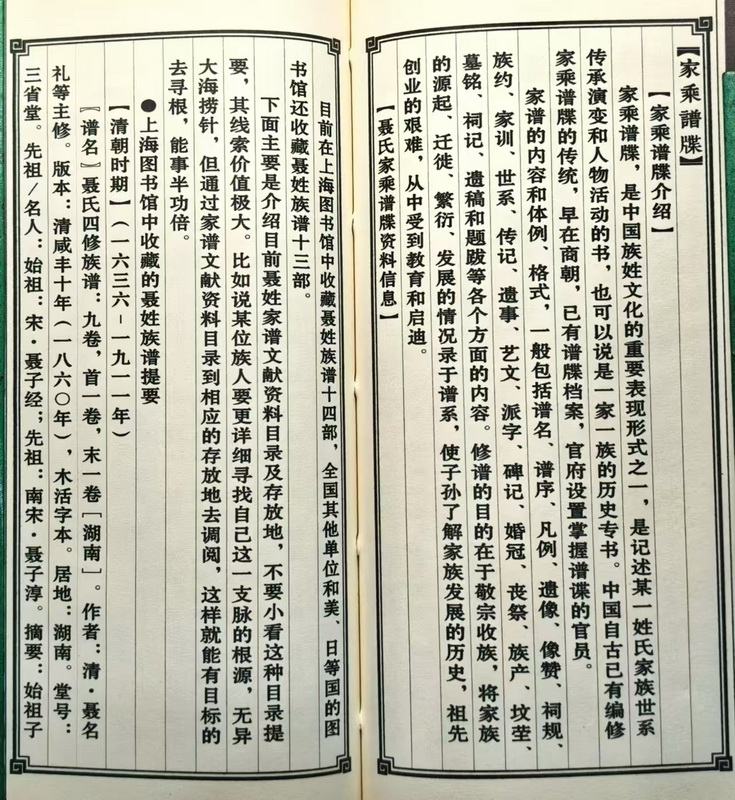 【家乘谱牒】
【家乘谱牒介绍】
家乘谱牒，是中国族姓文化的重要表现形式之一，是记述某一姓氏家族世系
传承演变和人物活动的书，也可以说是一家一族的历史专书。中国自古已有编修
家乘谱牒的传统，早在商朝，已有谱牒档案，官府设置掌握谱谍的官员。
家谱的内容和体例、格式，一般包括谱名、谱序、凡例、遗像、像赞、祠规、
族约、家训、世系、传记、遗事、艺文、派字、碑记、婚冠、丧祭、族产、坟茔、
墓铭、祠记、遗稿和题跋等各个方面的内容。修谱的目的在于敬宗收族，将家族
的源起、迁徙、繁衍、发展的情况录于谱系，使子孙了解家族发展的历史，祖先
创业的艰难，从中受到教育和启迪。
【聂氏家乘谱牒资料信息】
目前在上海图书馆中收藏聂姓族谱十四部，全国其他单位和美、日等国的图
书馆还收藏聂姓族谱十三部。
下面主要是介绍目前聂姓家谱文献资料目录及存放地，不要小看这种目录提
要，其线索价值极大。比如说某位族人要更详细寻找自己这一支脉的根源，无异
大海捞针，但通过家谱文献资料目录到相应的存放地去调阅，这样就能有目标的
去寻根，能事半功倍。
●上海图书馆中收藏的聂姓族谱提要
【清朝时期】（一六三六-一九一一年）
〖谱名〗聂氏四修族谱：九卷，首一卷，末一卷［湖南］。作者：清·聂名
礼等主修。版本：清咸丰十年（一八六〇年），木活字本。居地：湖南。堂号：
三省堂。先祖/名人：始祖：宋·聂子经；先祖：南宋·聂子淳。摘要：始祖子